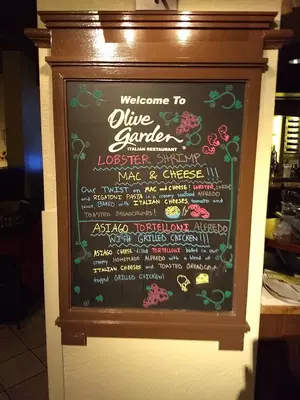 Welcome To
Olive
Garden
ITALIAN RESTAURANT
LOBSTER SHRIMP
MAC & CHEESE!!!
Our TWIST on MAC and CHEESE! LOBSTER, SHRIMP,
and RIGATONI PASTA in a creamy seafood ALFREDO
sauce, BAKED with ITALIAN CHEESES, tomato and
TOASTED BREADCRUMBS!
ASIAGO TORTELLONI ALFREDO
WITH GRILLED CHICKEN!!!
ASIAGO CHEESE filled TORTELLONI baked in our
creamy HOMEMADE ALFREDO with a blend of
ITALIAN CHEESES and TOASTED BREADCRUMBS
topped GRILLED CHICKEN!